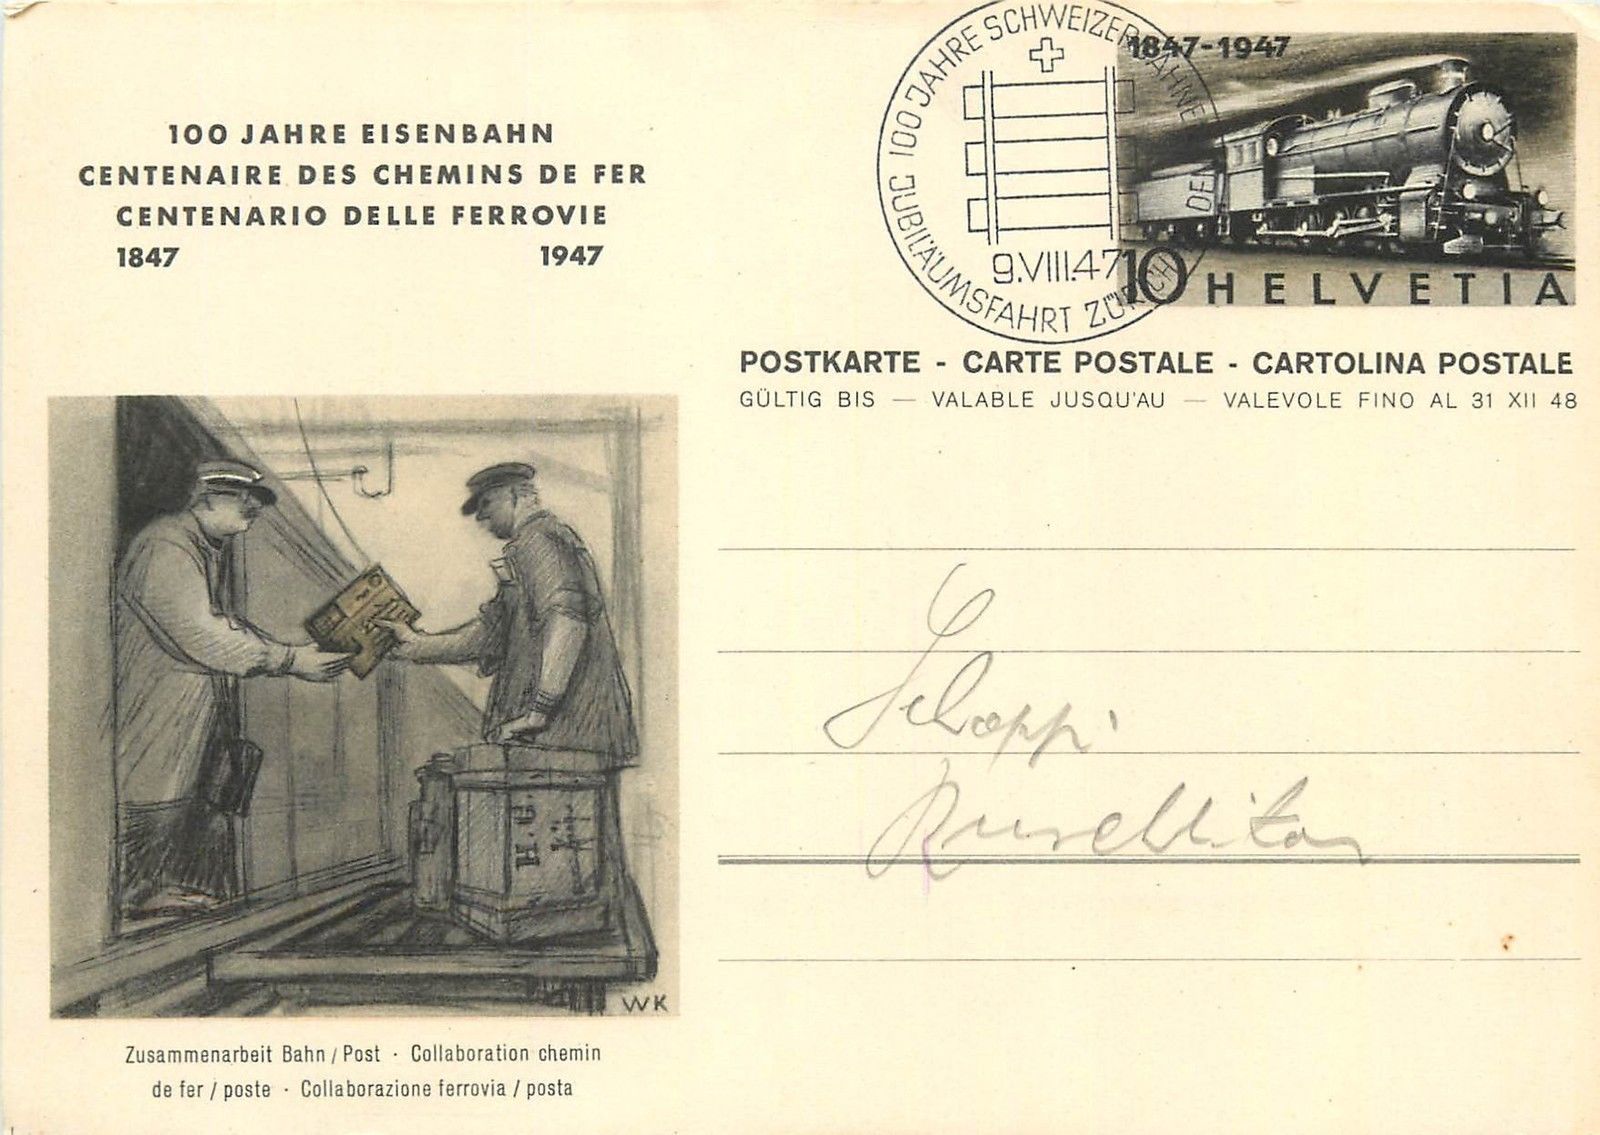 100 JAHRE EISENBAHN
CENTENAIRE DES CHEMINS DE FER
CENTENARIO DELLE FERROVIE
1847 1947
100 JAHRE SCHWEIZER BAHNEN
JUBILÄUMSFAHRT ZÜRICH
9.VIII.47
1847-1947
10 HELVETIA
POSTKARTE - CARTE POSTALE - CARTOLINA POSTALE
GÜLTIG BIS — VALABLE JUSQU'AU — VALEVOLE FINO AL 31 XII 48
H.G.
WK
Zusammenarbeit Bahn / Post · Collaboration chemin
de fer / poste · Collaborazione ferrovia / posta
Schoppi
Ruschlikon